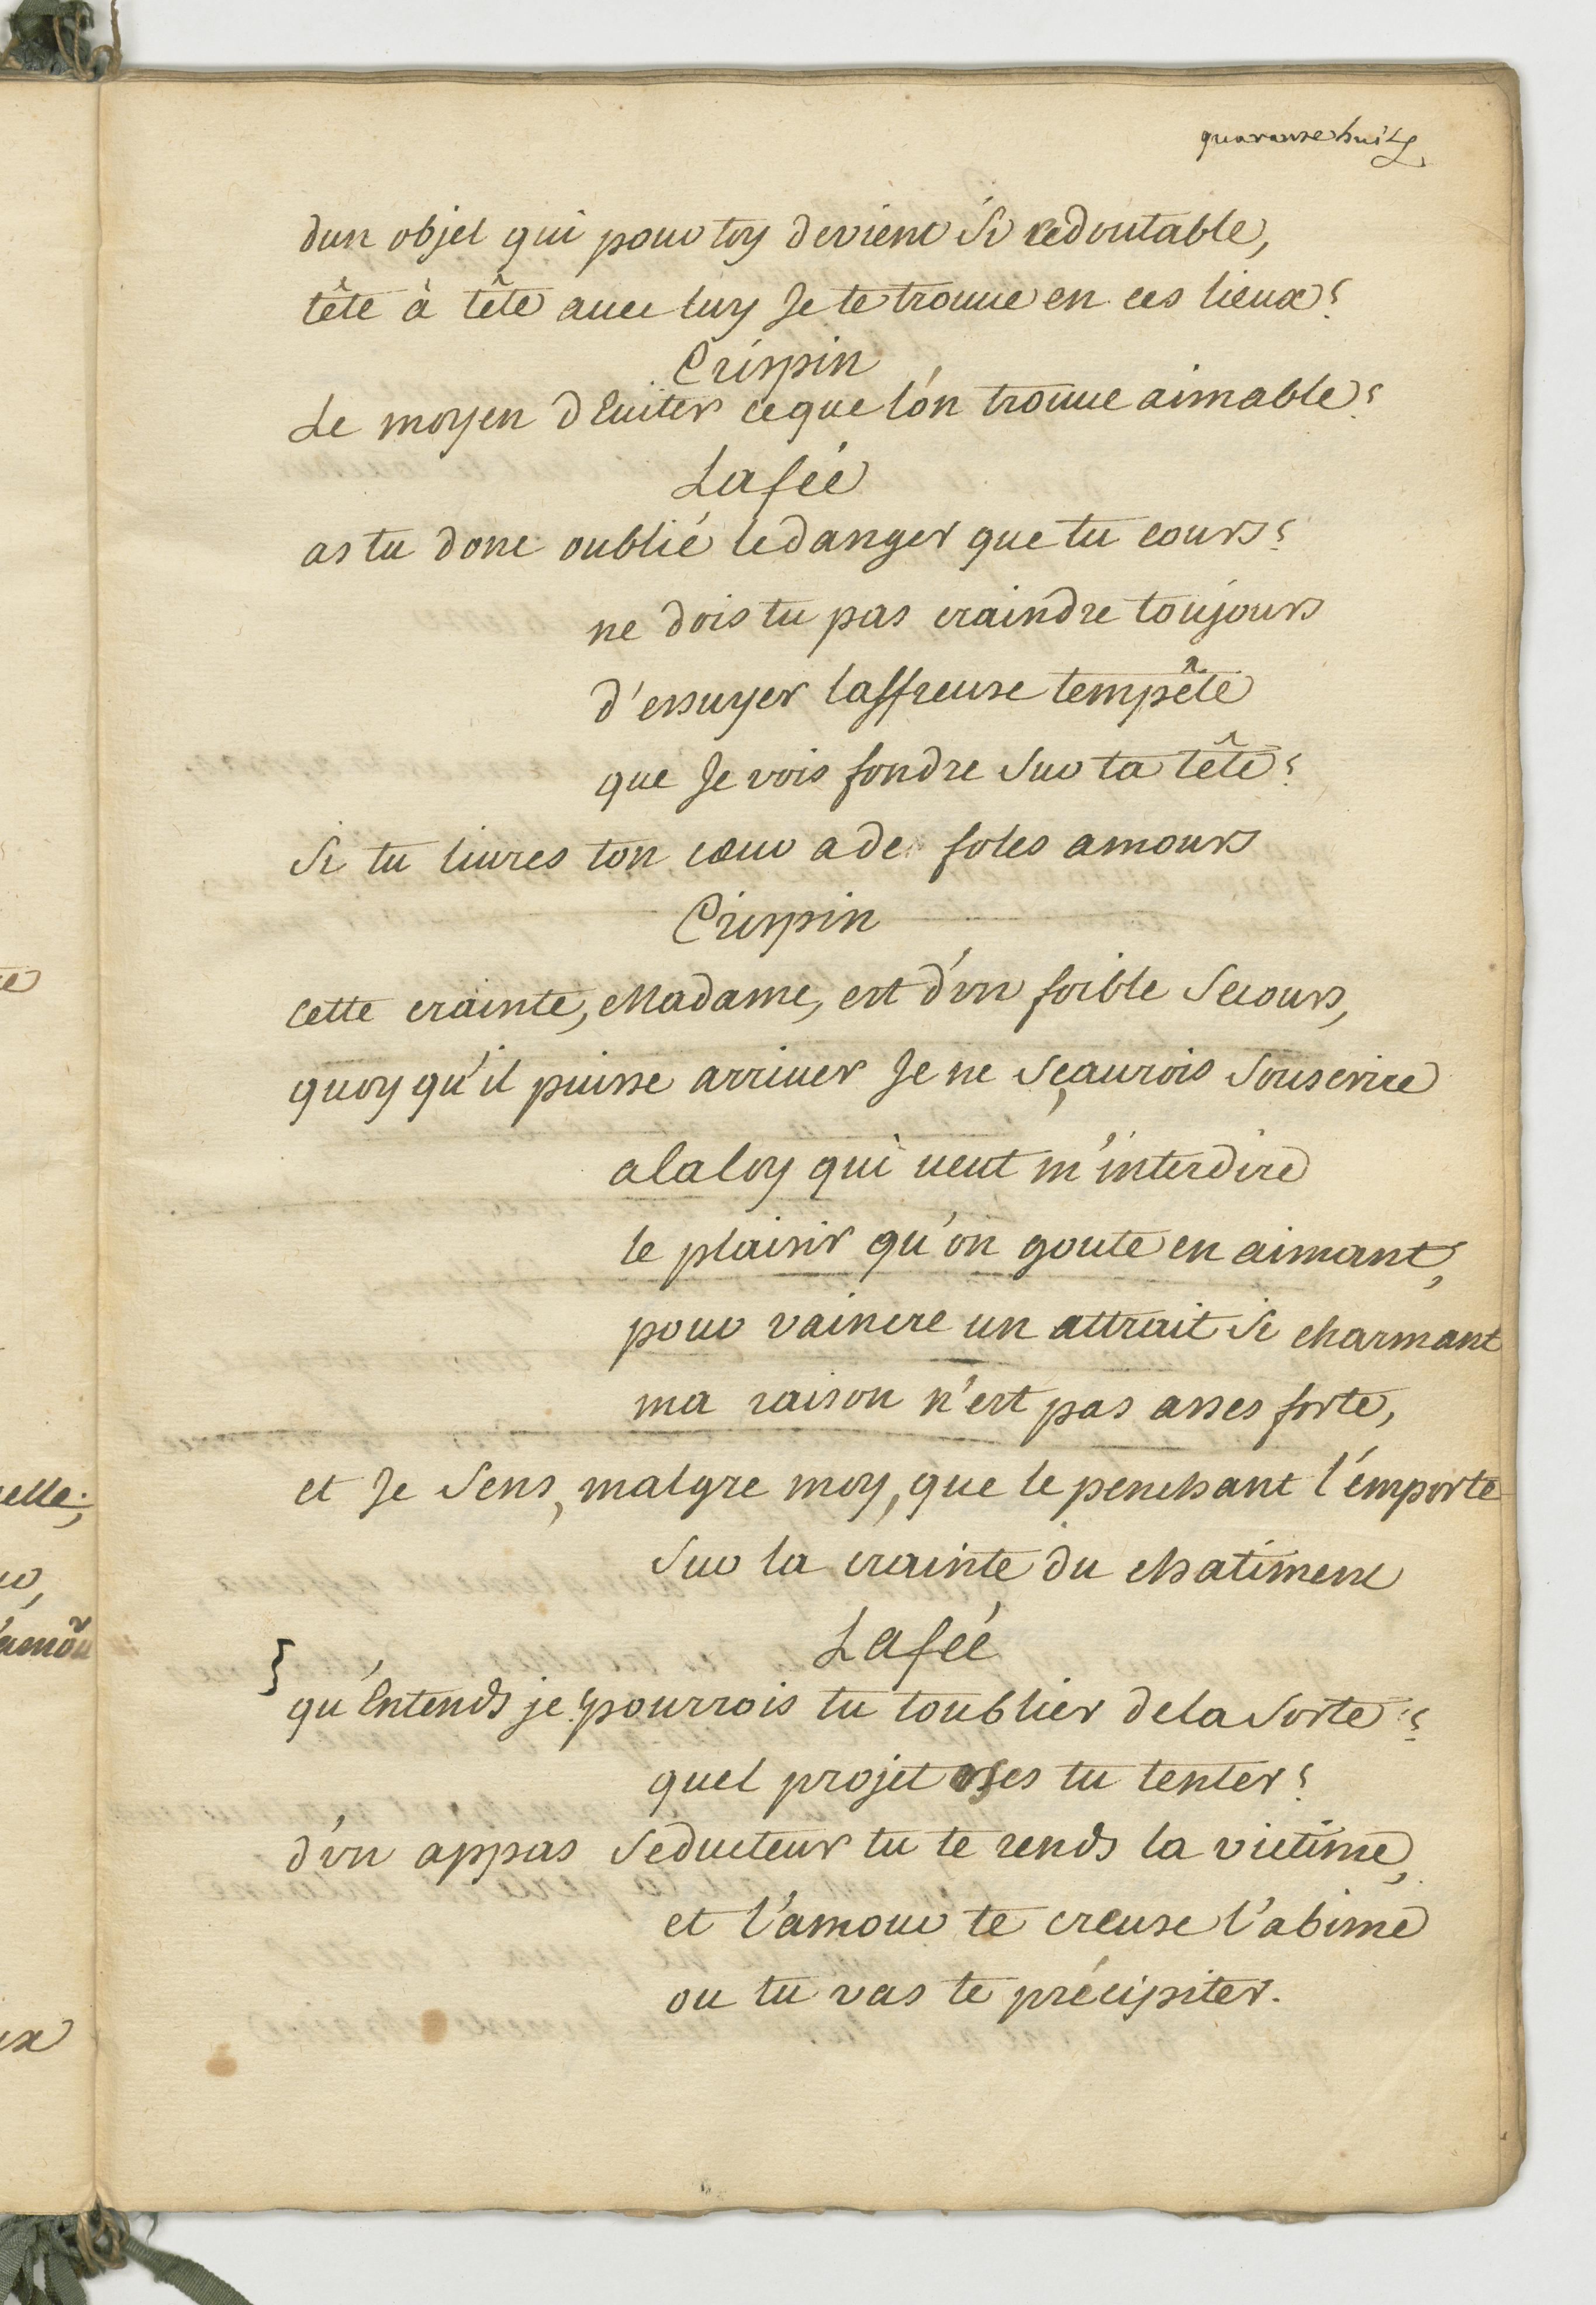 quarante huit
dun objet qui pour toy devient Si redoutable,
tête à tête auec luy Je te trouue en ces lieux?
Crispin
Le moyen d'Euiter ce que l'ón trouue aimable?
La feé
as tu donc oublié le danger que tu cours?
ne dois tu pas craindre toujours
d'essuyer l'affreuse tempête
que Je vois fondre Sur ta tête?
Si tu liures ton cœur a de foles amours
Crispin
cette crainte, Madame, est d'vn foible Secours,
quoy qu'il puisse arriuer Je ne Sçaurois Souscrire
a la loy qui ueut m'interdire
le plaisir qu'on goute en aimant,
pour vaincre un attrait Si charmant
ma raison n'est pas asses forte,
et Je Sens, malgre moy, que le penchant l'émporte
Sur la crainte du chatiment
La feé
qu'Entends je? pourrois tu t'oublier de la Sorte?
quel projet oses tu tenter?
d'vn appas Seducteur tu te rends la victime,
et l'amour te creuse l'abime
ou tu vas te précipiter.